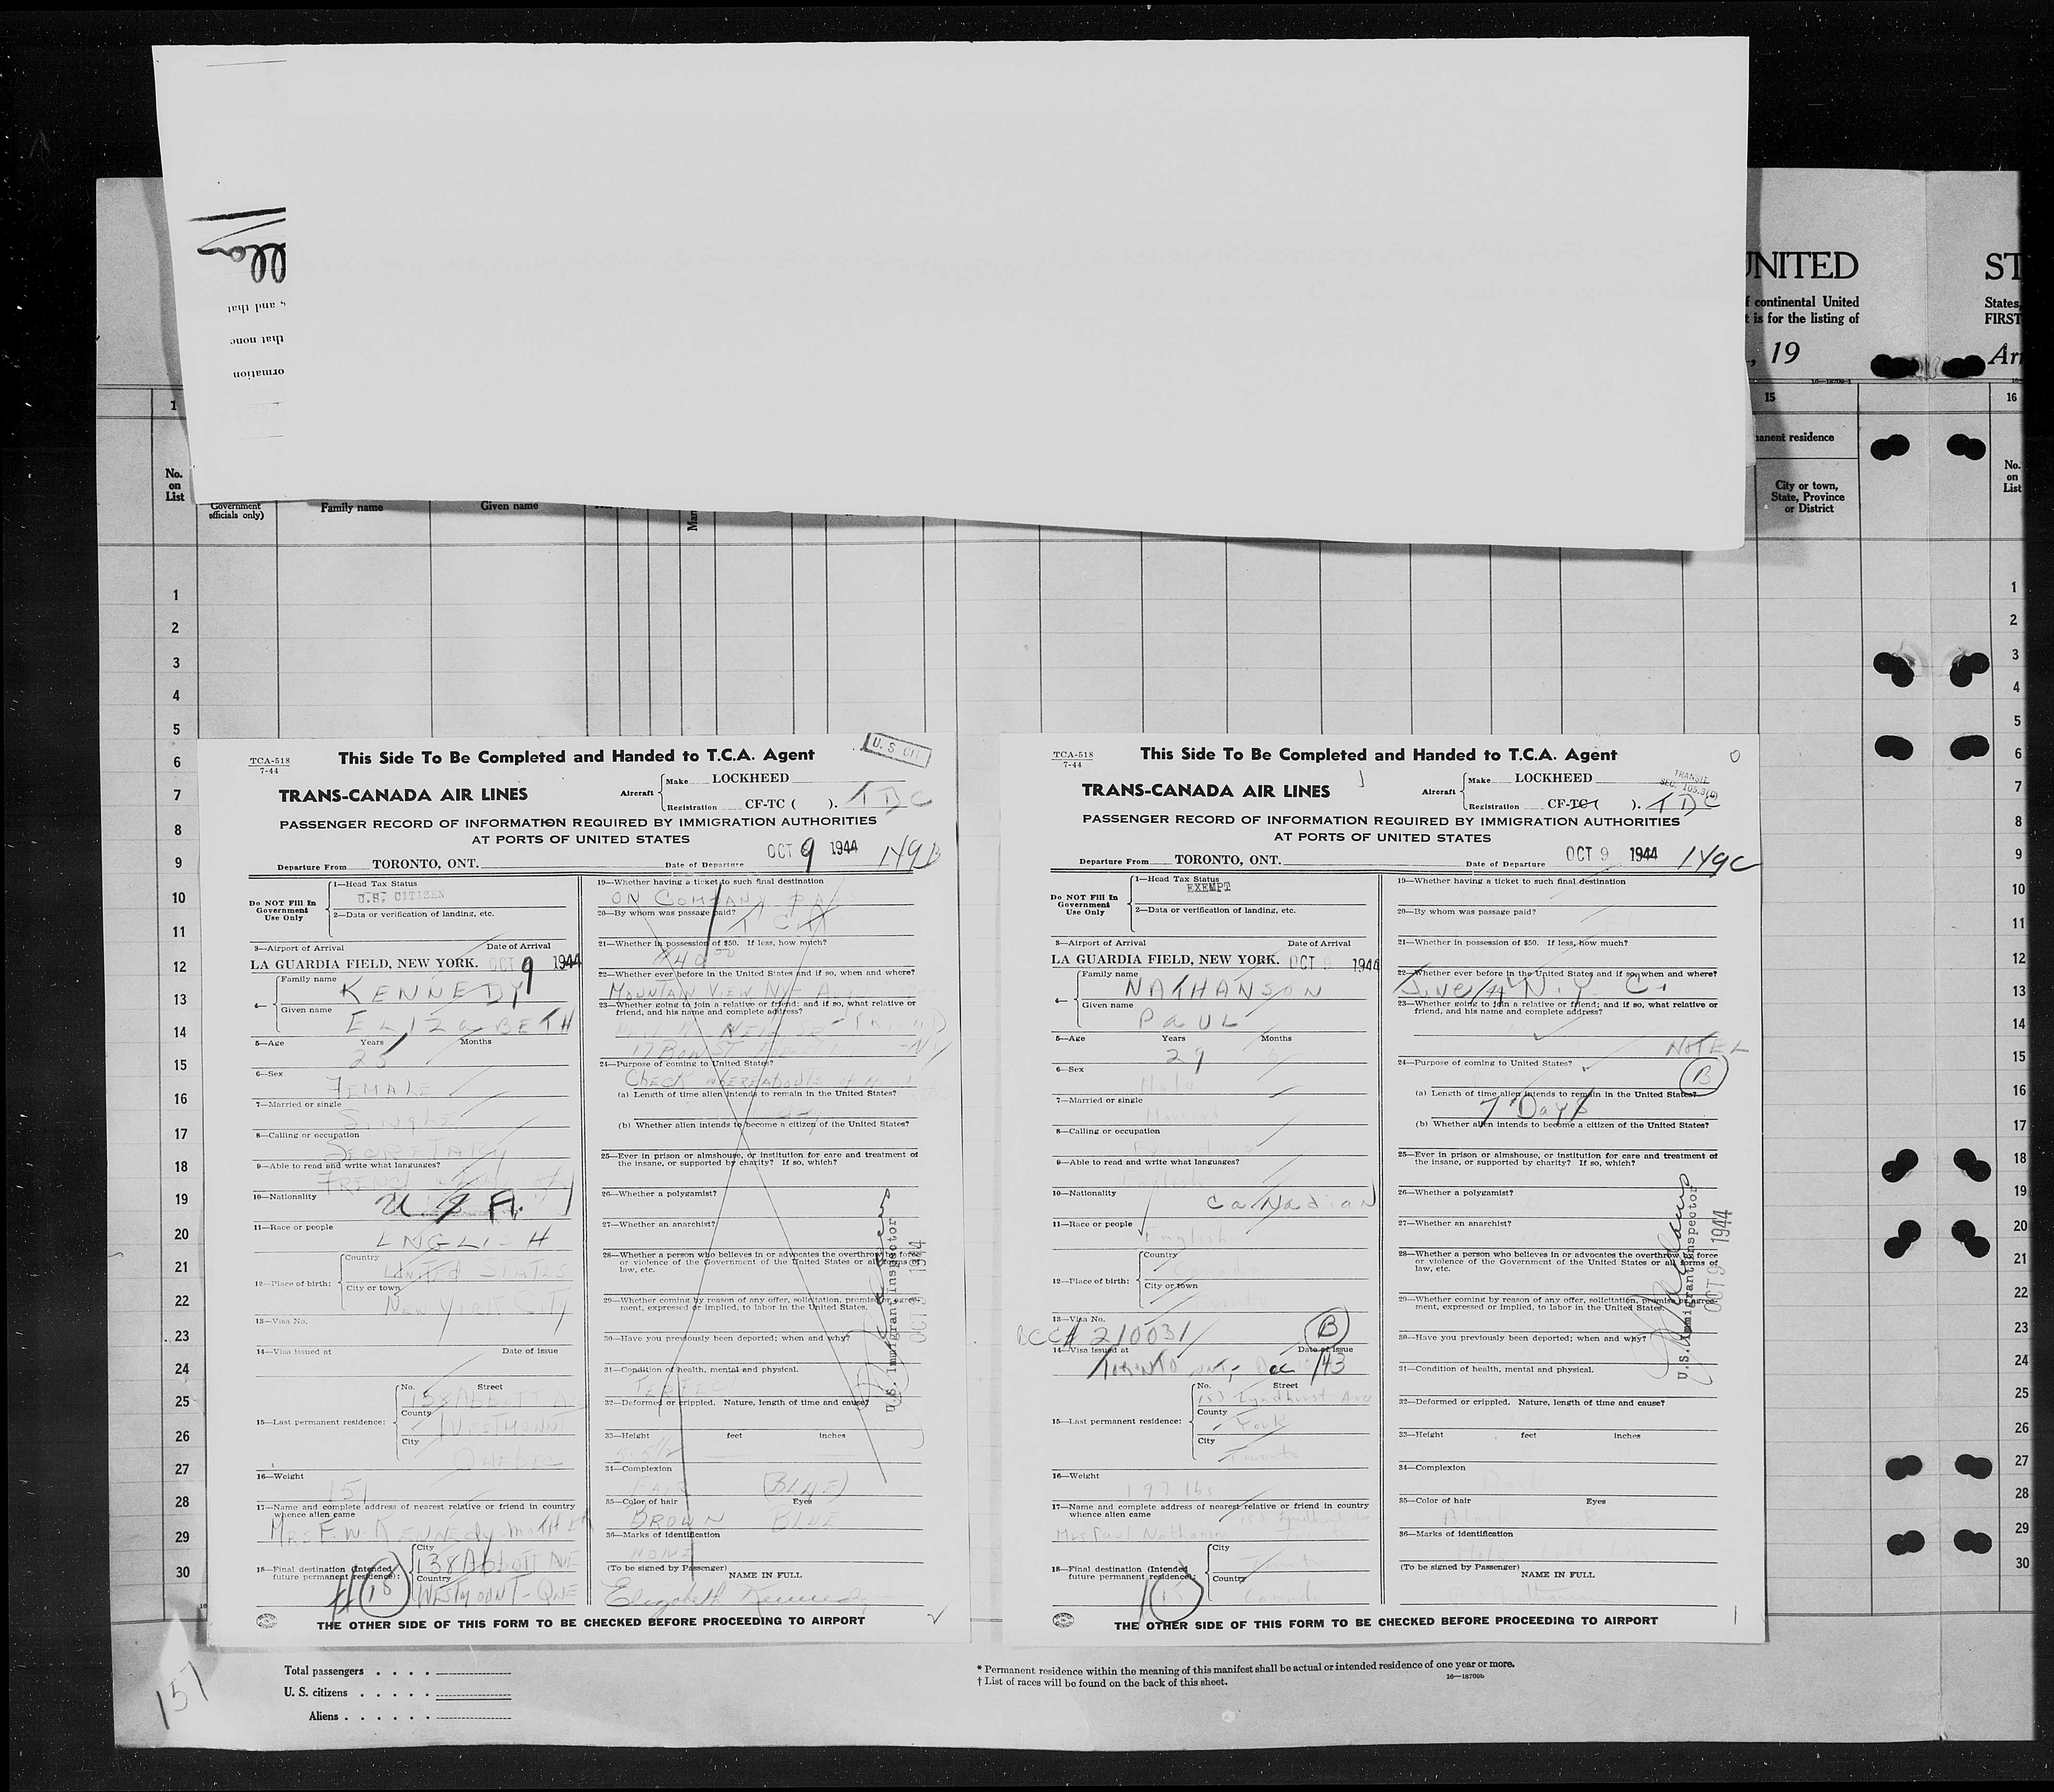 UNITED
ST
f continental United
States,
t is for the listing of
FIRST
, 19
Arr
16—18709-1
1
15
16
and that
that none
ormation
manent residence
No.
on
List
Government
officials only)
Family name
Given name
City or town,
State, Province
or District
No.
on
List
1
2
3
4
5
6
7
8
9
10
11
12
13
14
15
16
17
18
19
20
21
22
23
24
25
26
27
28
29
30
TCA-518
7-44
This Side To Be Completed and Handed to T.C.A. Agent
U. S. CIT
TRANS-CANADA AIR LINES
Aircraft
Make LOCKHEED
Registration CF-TC ( ). TDC
PASSENGER RECORD OF INFORMATION REQUIRED BY IMMIGRATION AUTHORITIES
AT PORTS OF UNITED STATES
Departure From TORONTO, ONT. Date of Departure OCT 9 1944 149B
Do NOT Fill In
Government
Use Only
1—Head Tax Status
U.S. CITIZEN
2—Data or verification of landing, etc.
3—Airport of Arrival Date of Arrival
LA GUARDIA FIELD, NEW YORK. OCT 9 1944
4—
Family name
KENNEDY
Given name
ELIZABETH
5—Age Years Months
25
6—Sex
FEMALE
7—Married or single
SINGLE
8—Calling or occupation
SECRETARY
9—Able to read and write what languages?
FRENCH
10—Nationality
U S A.
11—Race or people
ENGLISH
12—Place of birth:
Country
UNITED STATES
City or town
NEW YORK CITY
13—Visa No.
14—Visa issued at Date of issue
15—Last permanent residence:
No. Street
138 ABBOTT A
County
WESTMOUNT
City
QUEBEC
16—Weight
151
17—Name and complete address of nearest relative or friend in country
whence alien came
MRS F. W. KENNEDY MOTHER
18—Final destination (Intended
future permanent residence):
City
138 ABBOTT AVE
Country
WESTMOUNT - QUE
18
19—Whether having a ticket to such final destination
ON COMPANY PASS
20—By whom was passage paid?
T C A
21—Whether in possession of $50. If less, how much?
$40.00
22—Whether ever before in the United States and if so, when and where?
MOUNTAIN VIEW NY
23—Whether going to join a relative or friend; and if so, what relative or
friend, and his name and complete address?
24—Purpose of coming to United States?
CHECK WHEREABOUTS OF
(a) Length of time alien intends to remain in the United States?
(b) Whether alien intends to become a citizen of the United States?
25—Ever in prison or almshouse, or institution for care and treatment of
the insane, or supported by charity? If so, which?
26—Whether a polygamist?
27—Whether an anarchist?
28—Whether a person who believes in or advocates the overthrow by force
or violence of the Government of the United States or all forms of
law, etc.
29—Whether coming by reason of any offer, solicitation, promise or agree-
ment, expressed or implied, to labor in the United States.
30—Have you previously been deported; when and why?
31—Condition of health, mental and physical.
PERFECT
32—Deformed or crippled. Nature, length of time and cause?
33—Height feet inches
34—Complexion
FAIR (BLUE)
35—Color of hair Eyes
BROWN BLUE
36—Marks of identification
NONE
(To be signed by Passenger)
NAME IN FULL
Elizabeth Kennedy
U.S. Immigrant Inspector
OCT 9 1944
THE OTHER SIDE OF THIS FORM TO BE CHECKED BEFORE PROCEEDING TO AIRPORT
TCA-518
7-44
This Side To Be Completed and Handed to T.C.A. Agent
TRANS-CANADA AIR LINES
Aircraft
Make LOCKHEED
TRANSIT
SEC. 105.3(c)
Registration CF-TC ( ). TDC
PASSENGER RECORD OF INFORMATION REQUIRED BY IMMIGRATION AUTHORITIES
AT PORTS OF UNITED STATES
Departure From TORONTO, ONT. Date of Departure OCT 9 1944 149C
Do NOT Fill In
Government
Use Only
1—Head Tax Status
EXEMPT
2—Data or verification of landing, etc.
3—Airport of Arrival Date of Arrival
LA GUARDIA FIELD, NEW YORK. OCT 9 1944
4—
Family name
NATHANSON
Given name
PAUL
5—Age Years Months
29
6—Sex
Male
7—Married or single
Married
8—Calling or occupation
9—Able to read and write what languages?
English
10—Nationality
Canadian
11—Race or people
English
12—Place of birth:
Country
Canada
City or town
Toronto
13—Visa No.
RCCA 210031 B
14—Visa issued at Date of issue
TORONTO ONT, Dec /43
15—Last permanent residence:
No. Street
153 Lyndhurst Ave
County
York
City
Toronto
16—Weight
197 lbs
17—Name and complete address of nearest relative or friend in country
whence alien came
153 Lyndhurst Ave
Mrs Paul Nathanson
18—Final destination (Intended
future permanent residence):
City
Toronto
Country
Canada
15
19—Whether having a ticket to such final destination
20—By whom was passage paid?
21—Whether in possession of $50. If less, how much?
22—Whether ever before in the United States and if so, when and where?
June/44 N.Y. C.
23—Whether going to join a relative or friend; and if so, what relative or
friend, and his name and complete address?
HOTEL
24—Purpose of coming to United States?
B
(a) Length of time alien intends to remain in the United States?
7 Days
(b) Whether alien intends to become a citizen of the United States?
25—Ever in prison or almshouse, or institution for care and treatment of
the insane, or supported by charity? If so, which?
26—Whether a polygamist?
27—Whether an anarchist?
28—Whether a person who believes in or advocates the overthrow by force
or violence of the Government of the United States or all forms of
law, etc.
29—Whether coming by reason of any offer, solicitation, promise or agree-
ment, expressed or implied, to labor in the United States.
30—Have you previously been deported; when and why?
31—Condition of health, mental and physical.
32—Deformed or crippled. Nature, length of time and cause?
33—Height feet inches
34—Complexion
Dark
35—Color of hair Eyes
Black Brown
36—Marks of identification
(To be signed by Passenger)
NAME IN FULL
U.S. Immigrant Inspector
OCT 9 1944
THE OTHER SIDE OF THIS FORM TO BE CHECKED BEFORE PROCEEDING TO AIRPORT
1
2
3
4
5
6
7
8
9
10
11
12
13
14
15
16
17
18
19
20
21
22
23
24
25
26
27
28
29
30
157
Total passengers . . . .
U. S. citizens . . . . .
Aliens . . . . . .
* Permanent residence within the meaning of this manifest shall be actual or intended residence of one year or more.
† List of races will be found on the back of this sheet.
16—18709b